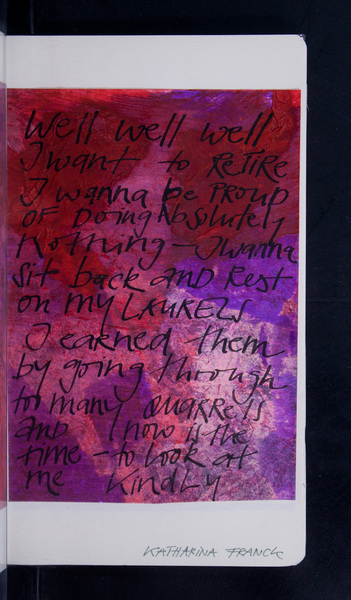 Well well well
I want to RETIRE
I wanna be PROUD
OF DOING ABSOLUTELY
NOTHING – I wanna
Sit back AND Rest
on my LAURELS
I earned them
by going through
too many QUARRELS
AND now is the
time – to look at
me KINDLY
KATHARINA FRANCK